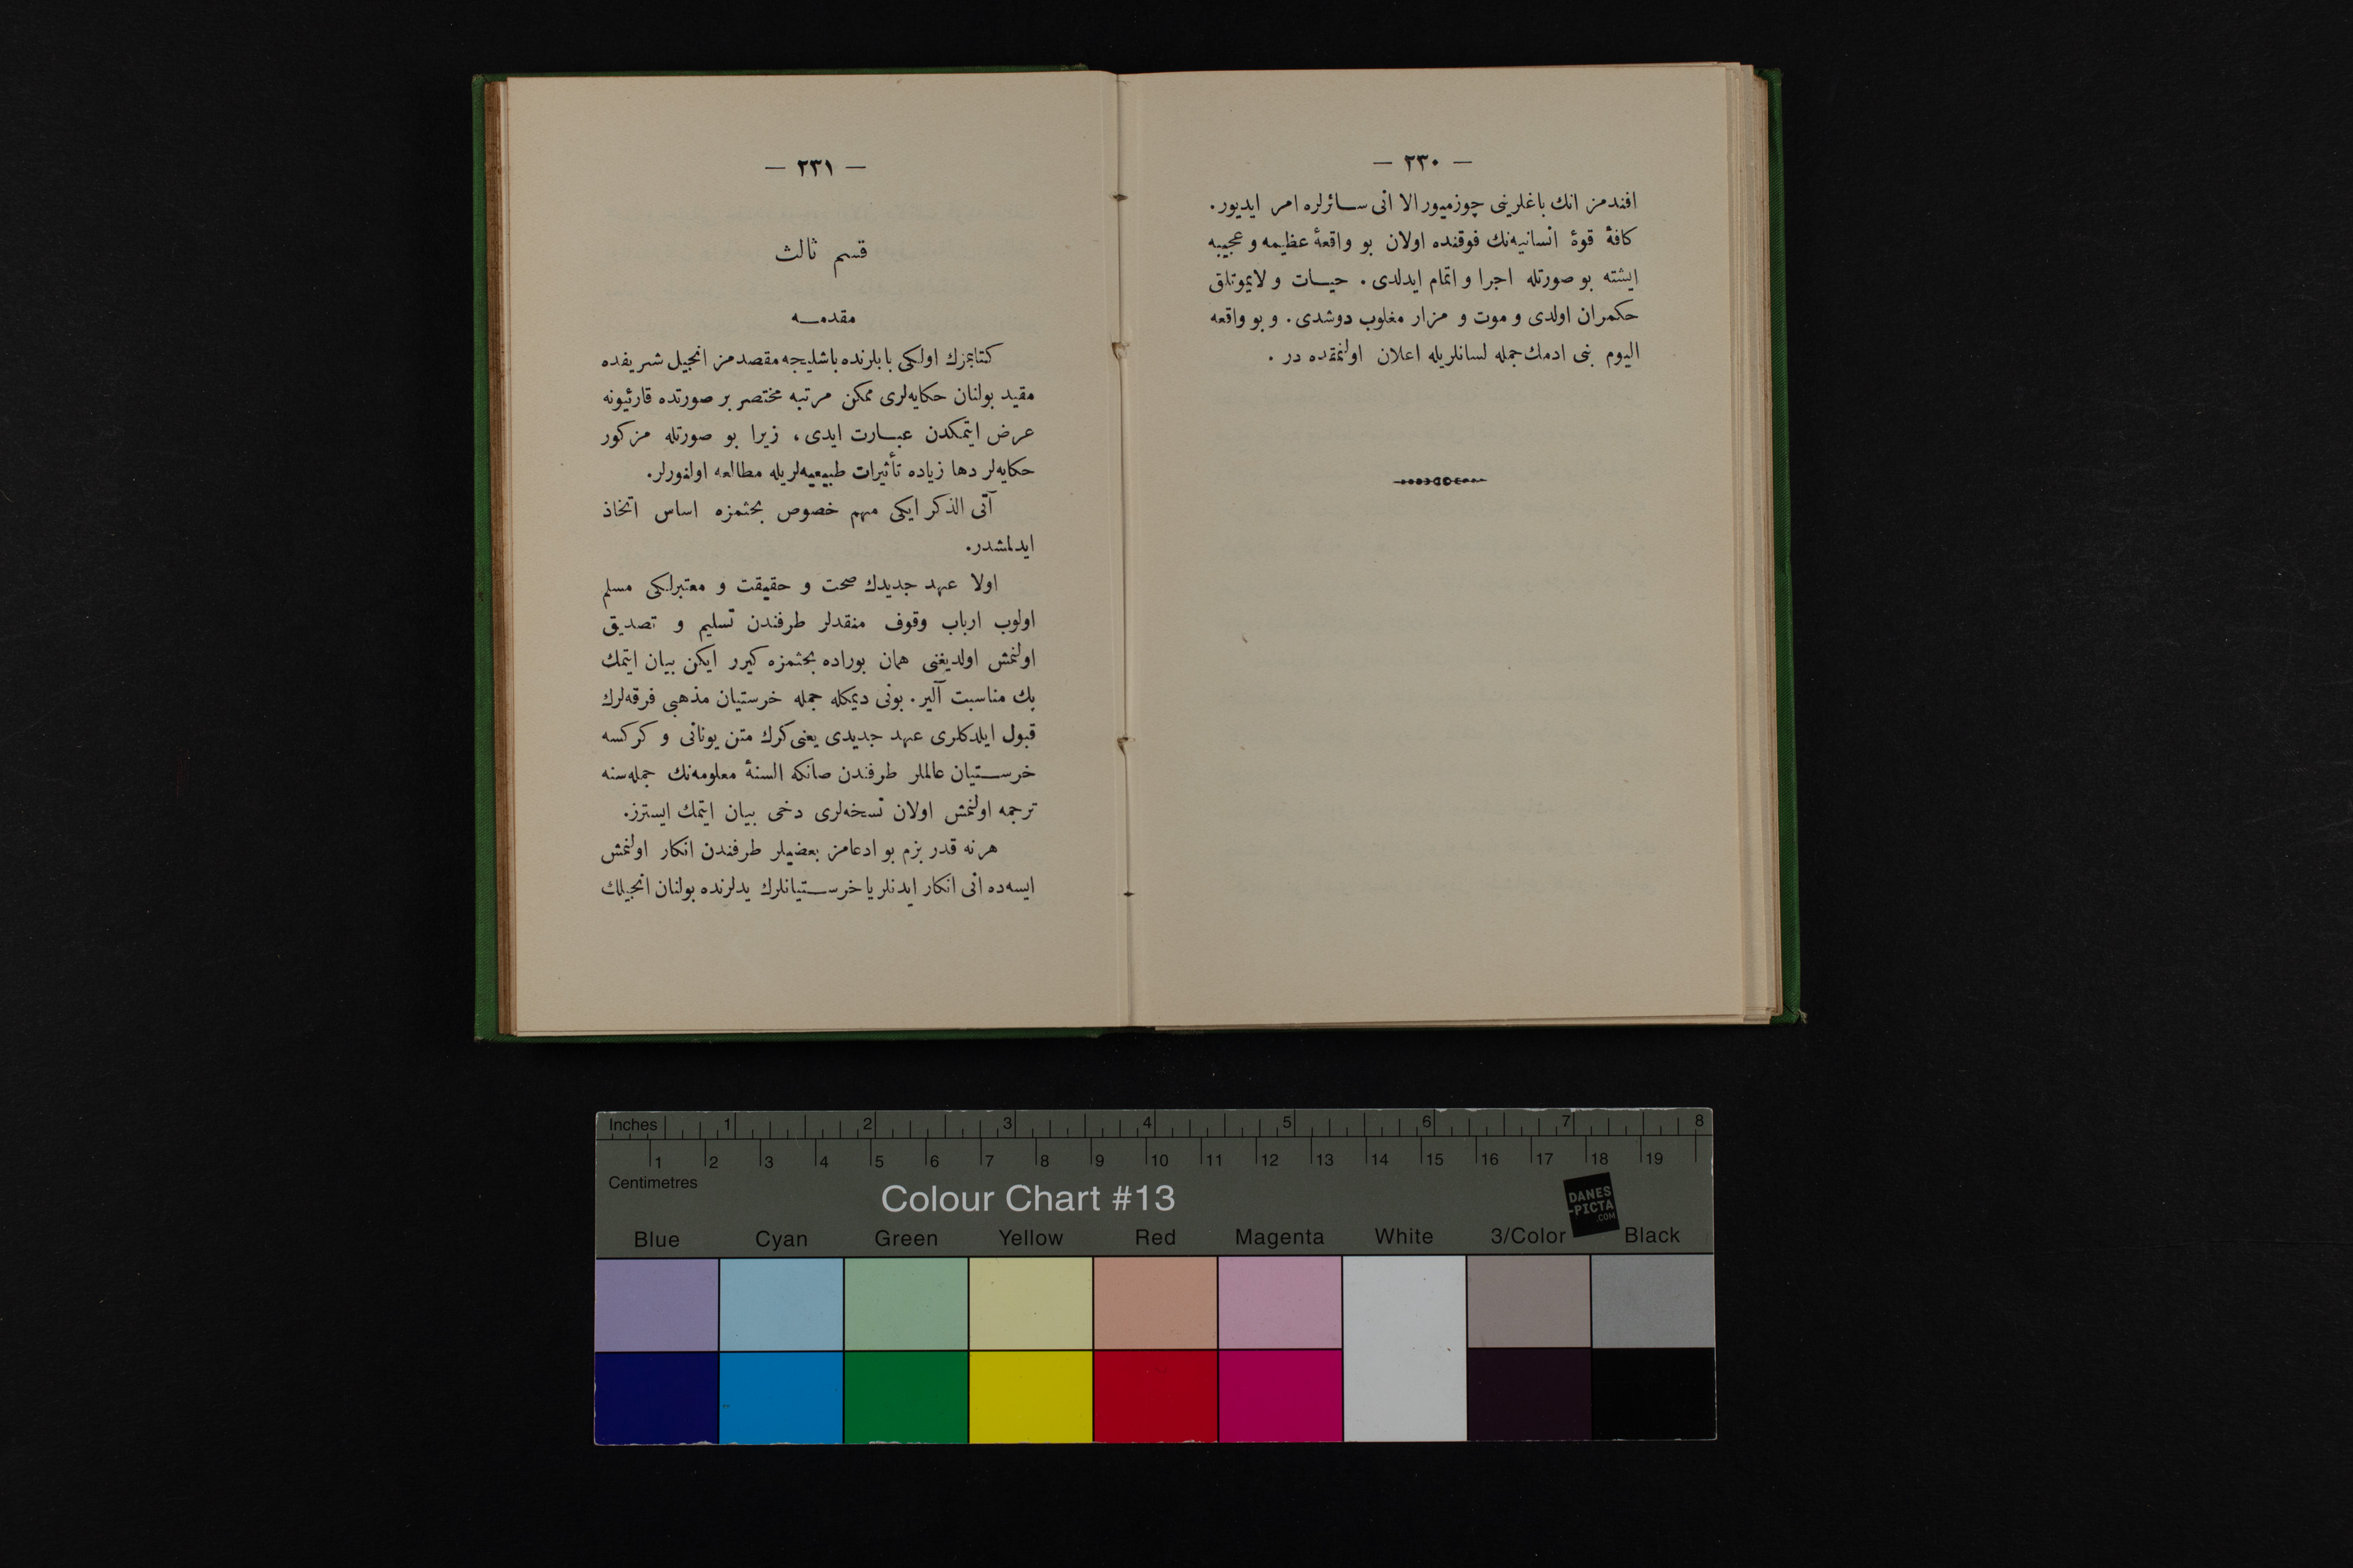 — ٢٣٠ —
افندمز انك باغلرینی چوزمیور الا انی سائرلره امر ایدیور.
كافهٔ قوهٔ انسانیه‌نك فوقنده اولان بو واقعهٔ عظیمه و عجیبه
ایشته بو صورتله اجرا و اتمام ایدلدی. حیات و لایموتلق
حكمران اولدی و موت و مزار مغلوب دوشدی. و بو واقعه
الیوم بنی ادمك جمله لسانلریله اعلان اولنمقده در .
— ٢٣١ —
قسم ثالث
مقدمه
كتابمزك اولكی بابلرنده باشلیجه مقصدمز انجیل شریفده
مقید بولنان حكایه‌لری ممكن مرتبه مختصر بر صورتده قارئیونه
عرض ایتمكدن عبارت ایدی، زیرا بو صورتله مزكور
حكایه‌لر دها زیاده تأثیرات طبیعیه‌لریله مطالعه اولنورلر.
آتی الذكر ایكی مهم خصوص بحثمزه اساس اتخاذ
ایدلمشدر.
اولا عهد جدیدك صحت و حقیقت و معتبرلكی مسلم
اولوب ارباب وقوف منقدلر طرفندن تسلیم و تصدیق
اولنمش اولدیغنی همان بوراده بحثمزه كیرر ایكن بیان ایتمك
پك مناسبت آلیر. بونی دیمكله جمله خرستیان مذهبی فرقه‌لرك
قبول ایلدكلری عهد جدیدی یعنی كرك متن یونانی و كركسه
خرستیان عالملر طرفندن صانكه السنهٔ معلومه‌نك جمله‌سنه
ترجمه اولنمش اولان نسخه‌لری دخی بیان ایتمك ایسترز.
هر نه قدر بزم بو ادعامز بعضیلر طرفندن انكار اولنمش
ایسه‌ده انی انكار ایدنلر یا خرستیانلرك یدلرنده بولنان انجیلك
Inches 1 2 3 4 5 6 7 8
1 2 3 4 5 6 7 8 9 10 11 12 13 14 15 16 17 18 19
Centimetres
Colour Chart #13
DANES
-PICTA
.COM
Blue Cyan Green Yellow Red Magenta White 3/Color Black